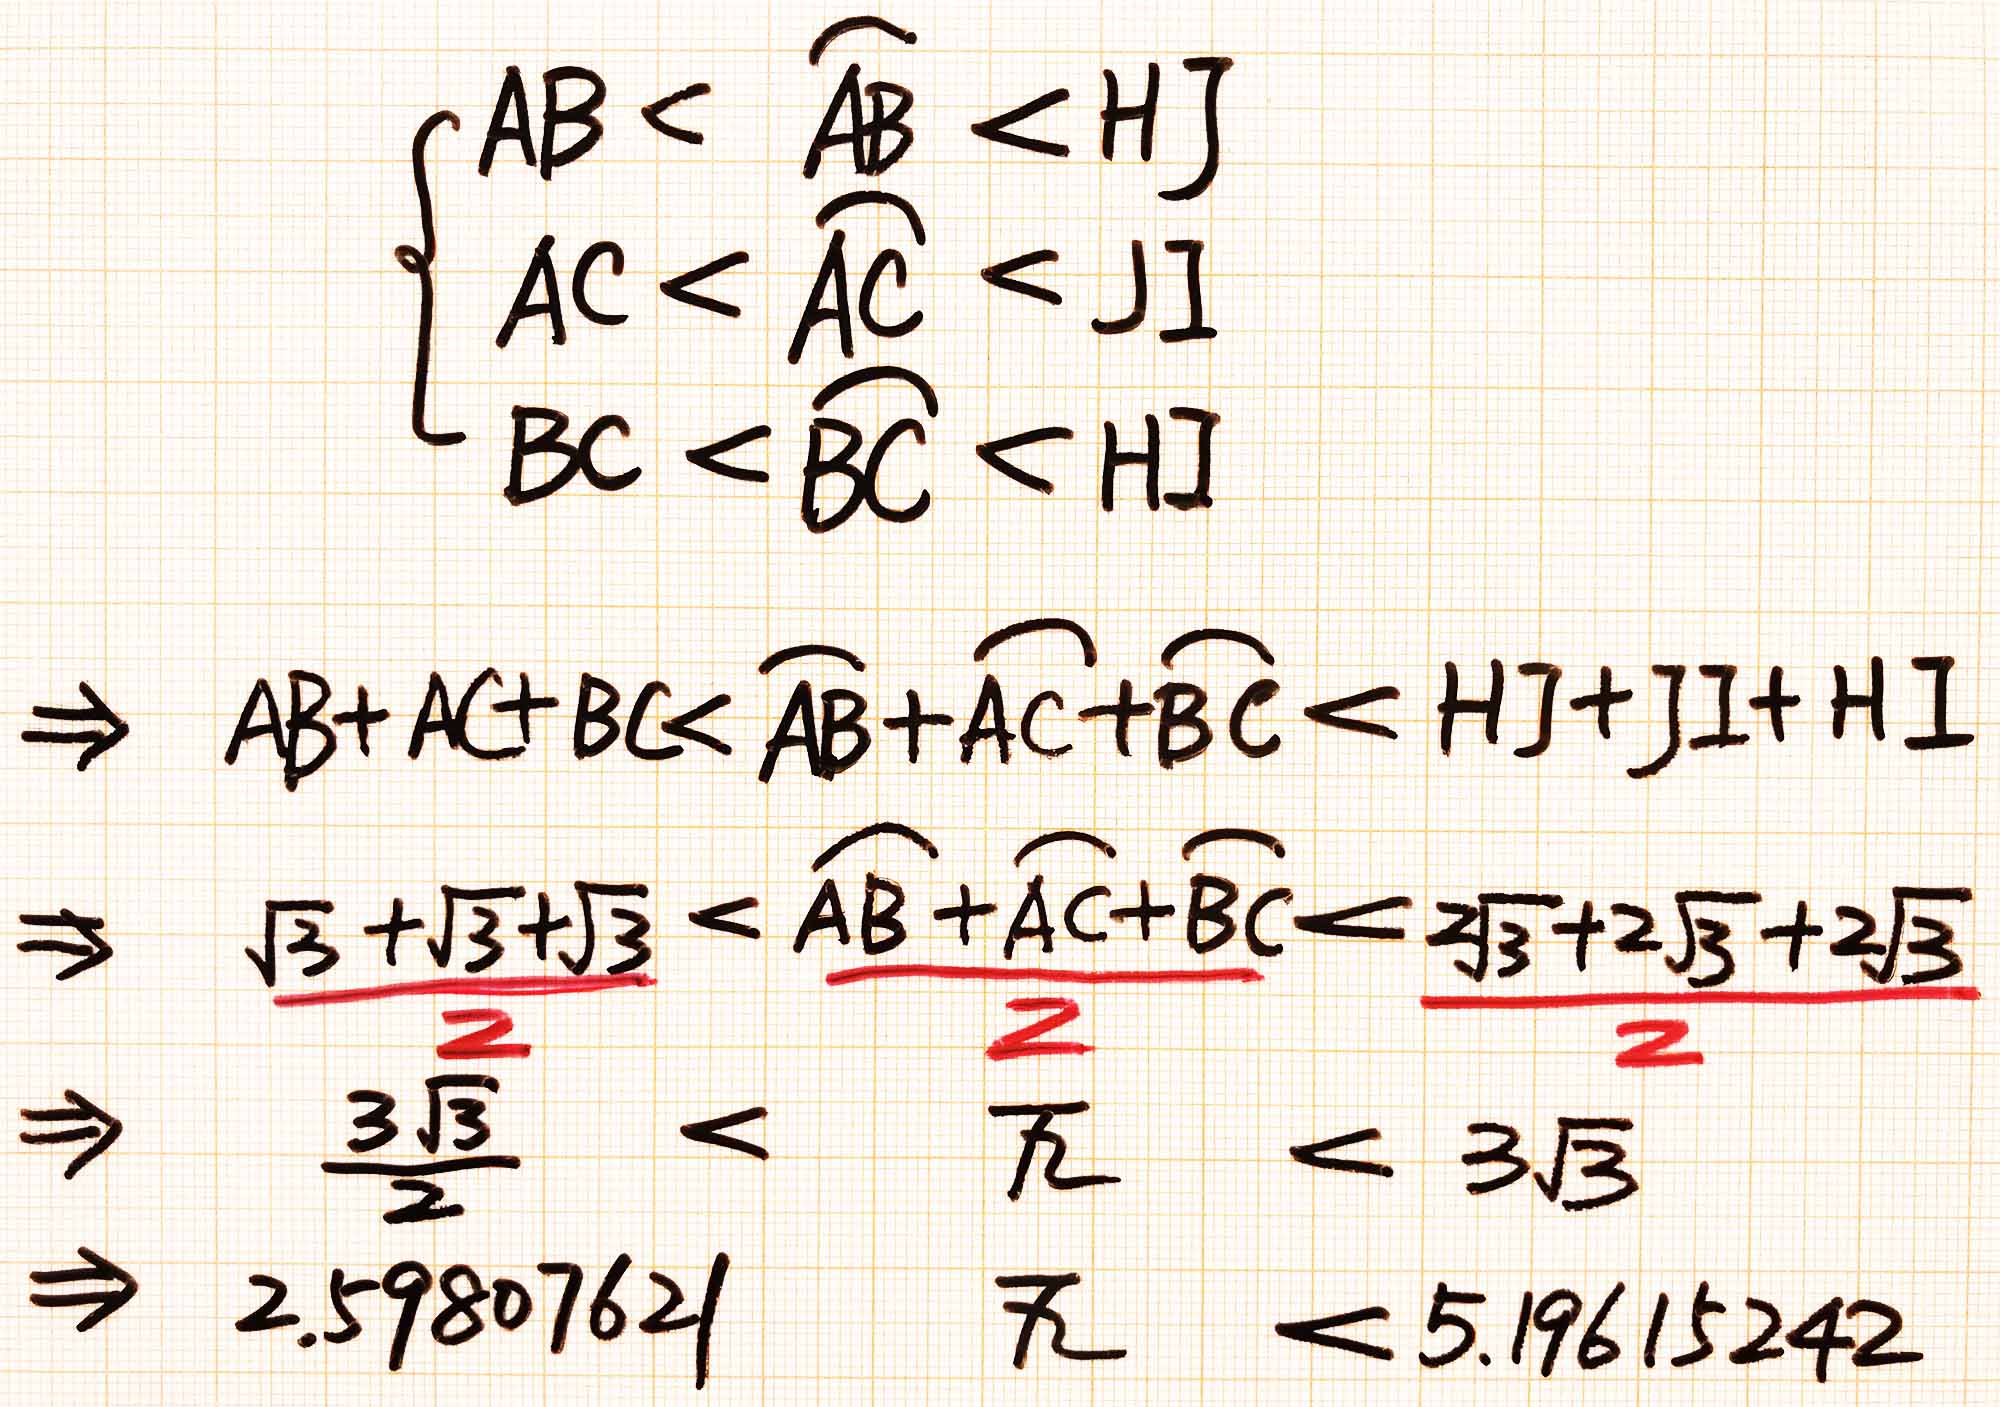 AB < ⌒AB < HJ
AC < ⌒AC < JI
BC < ⌒BC < HI
⇒ AB+AC+BC < ⌒AB+⌒AC+⌒BC < HJ+JI+HI
⇒ (√3+√3+√3)/2 < (⌒AB+⌒AC+⌒BC)/2 < (2√3+2√3+2√3)/2
⇒ 3√3/2 < π < 3√3
⇒ 2.59807621 π < 5.19615242